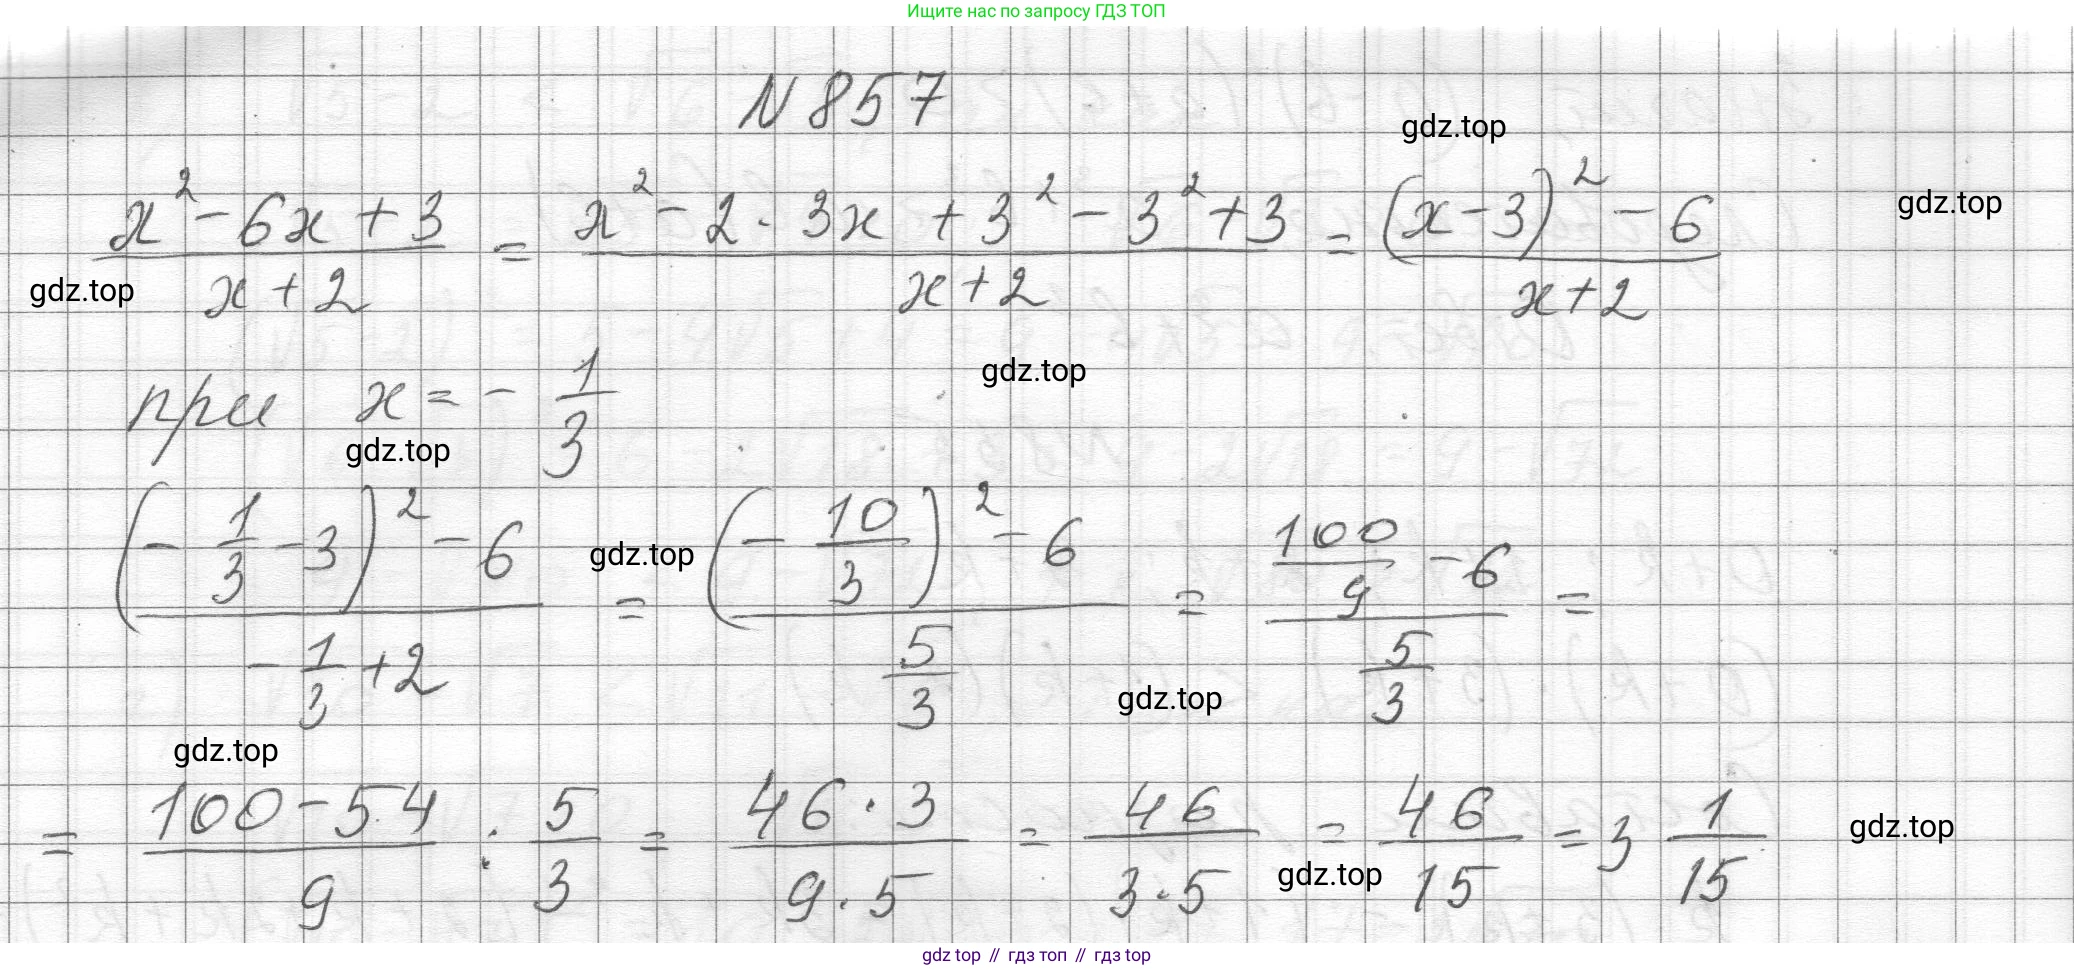 Ищите нас по запросу ГДЗ ТОП
N 857
gdz.top
(x² - 6x + 3)/(x + 2) = (x² - 2 · 3x + 3² - 3² + 3)/(x + 2) = ((x - 3)² - 6)/(x + 2)
gdz.top
gdz.top
при x = - 1/3
gdz.top
gdz.top
((- 1/3 - 3)² - 6)/(- 1/3 + 2) = ((- 10/3)² - 6)/(5/3) = (100/9 - 6)/(5/3) =
gdz.top
gdz.top
gdz.top
= (100 - 54)/9 : 5/3 = (46 · 3)/(9 · 5) = 46/(3 · 5) = 46/15 = 3 1/15
gdz.top
gdz.top
gdz top // гдз топ // гдз top